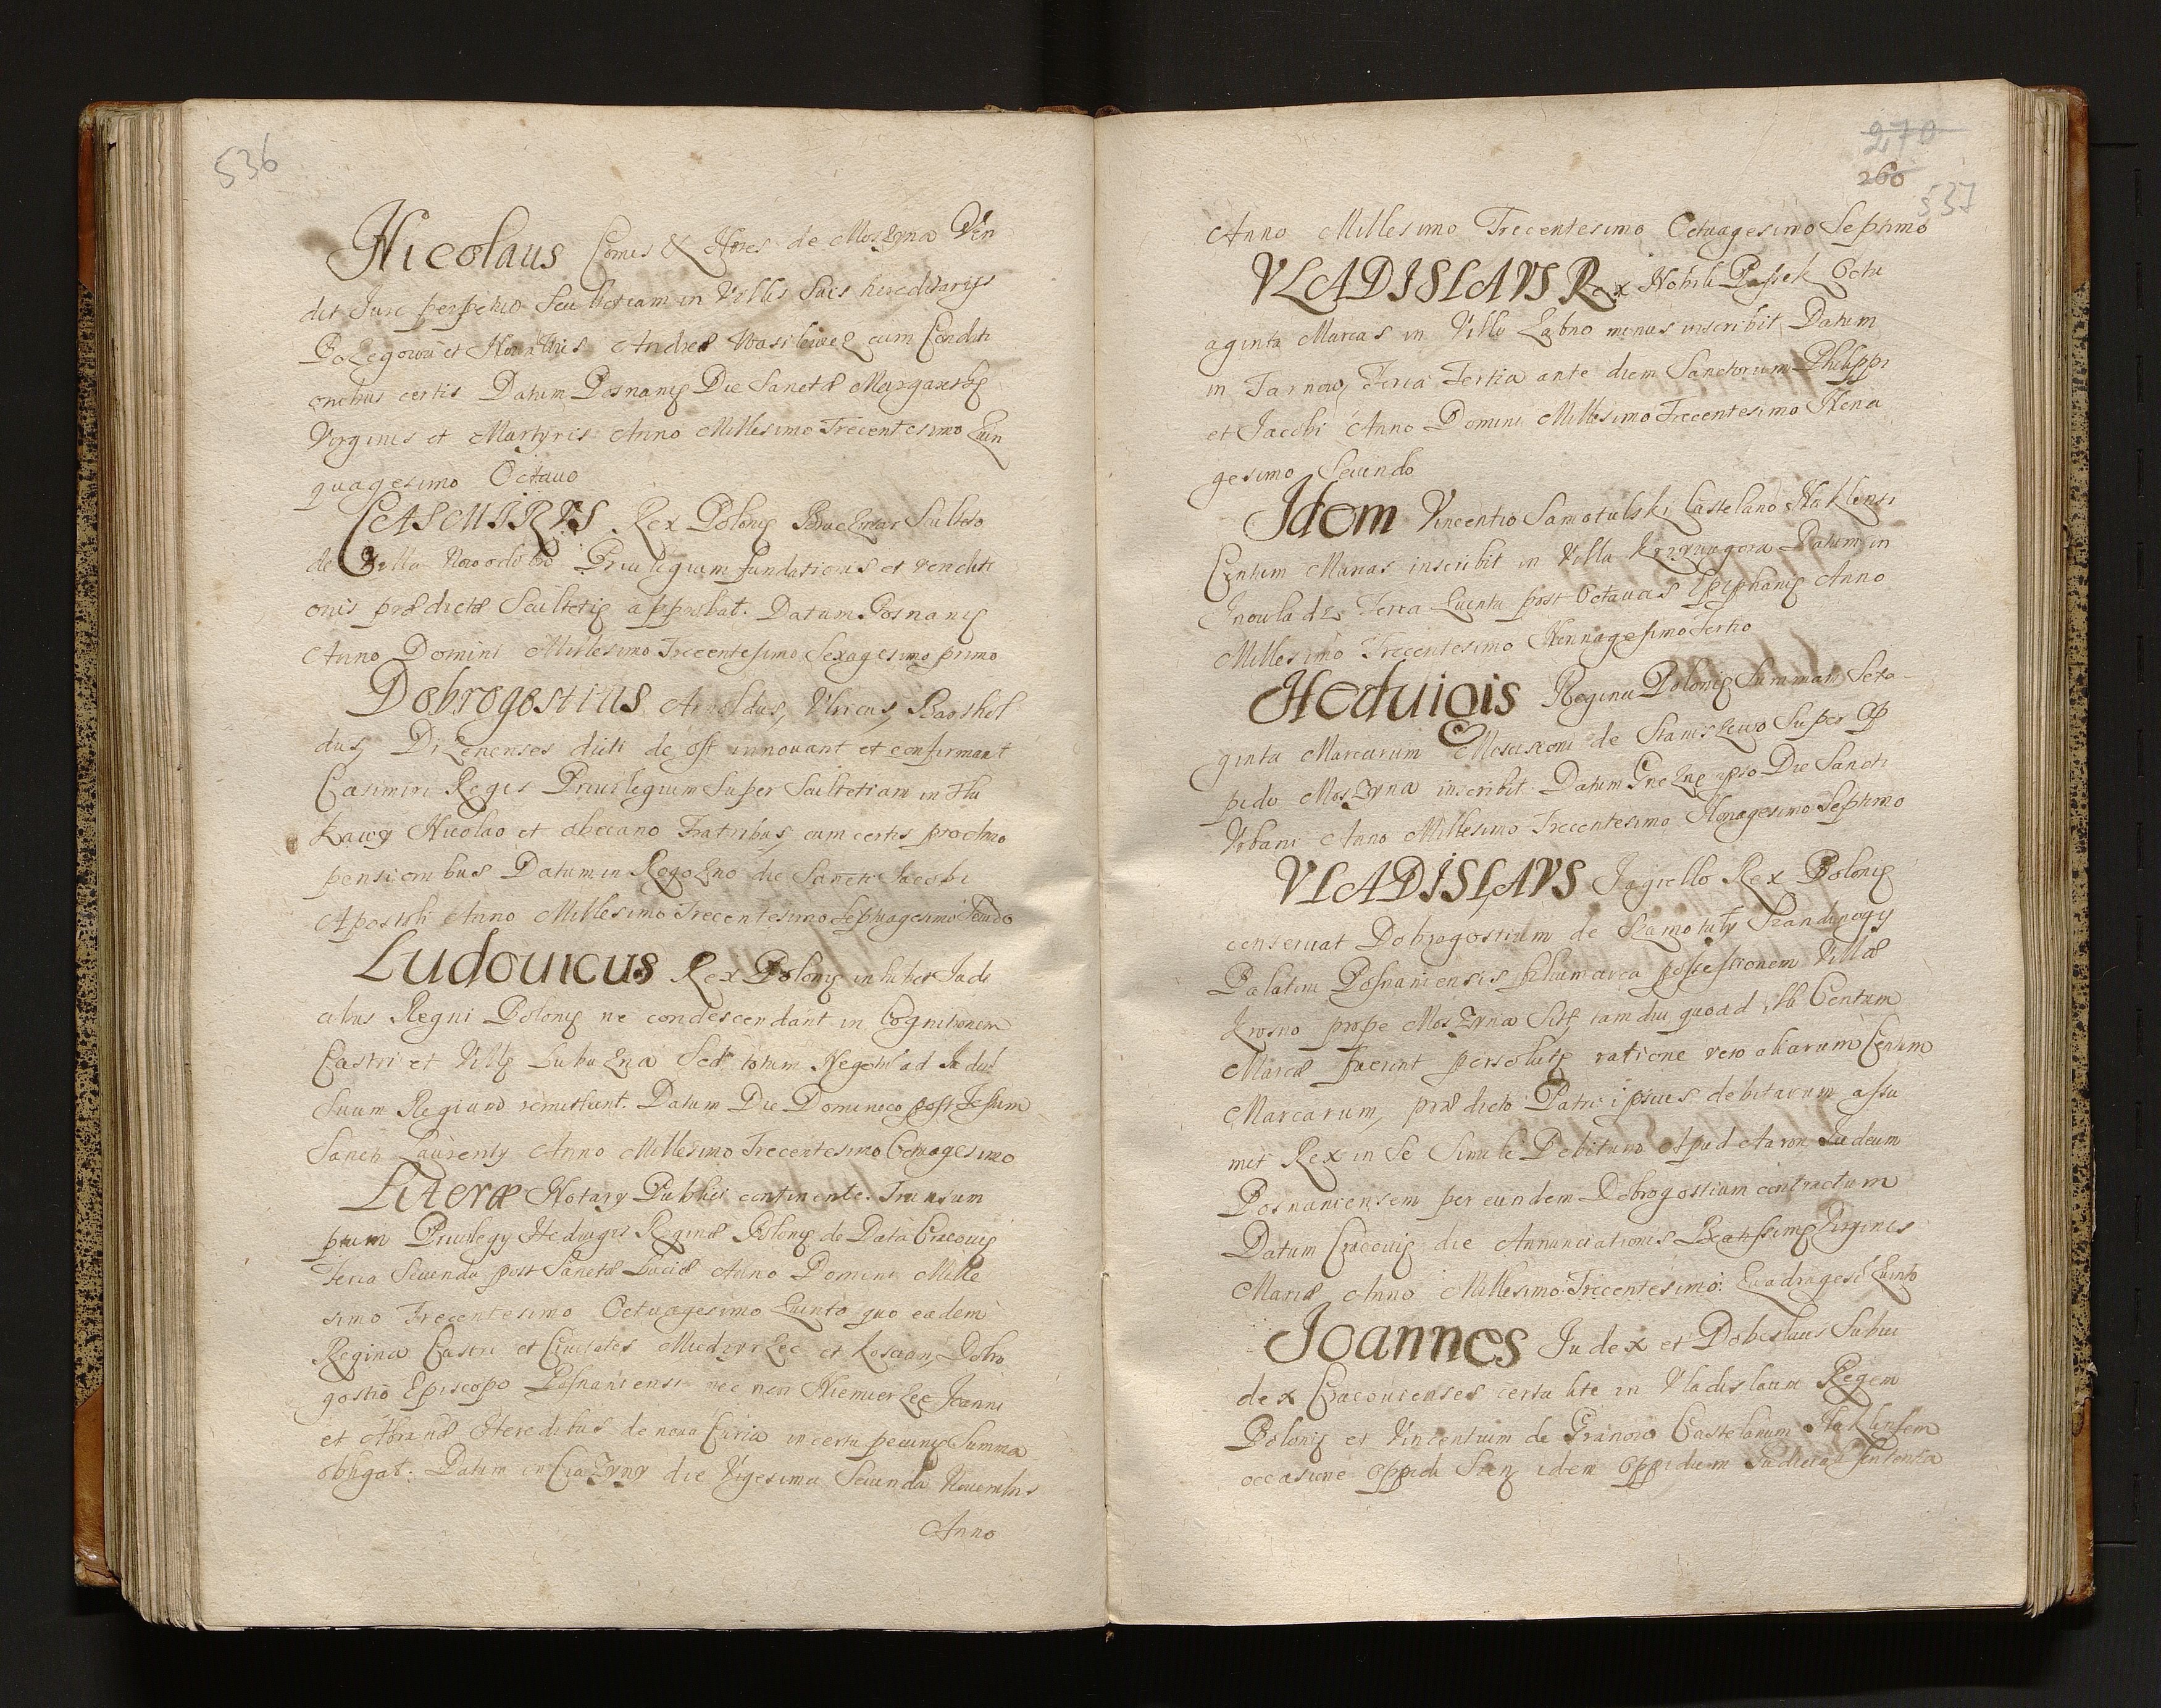 536
Nicolaus Comes & Hæres de Moszyna Ven
dit Jure perpetuo Scultetiam in Villis Suis hereditarijs
et Andreæ cum Conditi
onibus certis Datum Posnaniȩ Die Sanctæ Margarethȩ
Virginis et Martyris Anno Millesimo Trecentesimo Quin
quagesimo Octauo
CASMIRVS Rex Poloniȩ Sculteto
de Villa Priuilegium fundationis et venditi
onis prædictæ Scultetiȩ approbat. Datum Posnaniȩ
Anno Domini Millesimo Trecentesimo Sexagesimo primo
Dobrogostius Arnoldus, Ulricus,
dus, Drzenenses dicti de Ost innouant et confirmant
Casimiri Regis Priuilegium Super Scultetiam in
Nicolao et Fratribus, cum certis
pensionibus Datum in Rogozno die Sancti Jacobi
Apostoli Anno Millesimo Trecentesimo Septuagesimo Scudo
Ludouicus Rex Poloniȩ inhibet Judi
cibus Regni Poloniȩ ne condescendant in Cognitionem
Castri et Villȩ Sed totum Negotiū ad Judiciū
Suum Regium remittunt. Datum Die Dominico post Festum
Sancti Laurentÿ Anno Millesimo Trecentesimo Octuagesimo
Literæ Notarÿ Publici continente. Transum
ptum Priuilegÿ Heduigis Reginæ Poloniȩ de Data Cracouiȩ
Feria Secunda post Sanctæ Luciæ Anno Domini Mille
simo Trecentesimo Octuagesimo Quinto quo eadem
Regina Castra et Ciuitates Miedzyrzec et Koscian, Dobro
gostio Episcopo Posnaniensi nec non Niemierzȩ Joanni
et Abrahæ Hæredibus de noua Curia in certa pecuniȩ Summa
obligat. Datum in die Vigesima Secunda Nouembris
Anno
270
260
537
Anno Millesimo Trecentesimo Octuagesimo Septimo
VLADISLAVS Rex Nobili Passek Octu
aginta Marcas in Villa Labno minus inscribit, Datum
in Tarnow, Feria Tertia ante diem Sanctorum Philippi
et Jacobi Anno Domini Millesimo Trecentesimo Nona
gesimo Secundo
Idem Vincentio Samotulski Castelano Naklensi
Centum Marcas inscribit in Villa Krzywagora Datum in
Inowladz, Feria Quinta post Octauas Epiphaniȩ Anno
Millesimo Trecentesimo Nonnagesimo Tertio
Heduigis Regina Poloniȩ Summam Sexa
ginta Marcarum Moscisconi de Staniszewo Super Op
pido Moszyna inscribit. Datum Gneznȩ ipso Die Sancti
Vrbani Anno Millesimo Trecentesimo Nonagesimo Septimo
VLADISLAVS Jagiello Rex Poloniȩ
conseruat Dobrogostium de Szamotuly Szandinogÿ
Palatini Posnaniensis filium circa possessionem Villæ
Krosno prope Moszyna Sitȩ tamdiu quoad, illi Centum
Marcæ fuerint persolutȩ ratione vero aliarum Centum
Marcarum, prædicto Patri ipsius debitarum assu
mit Rex in Se Simile Debitum Apud Aaron Judeum
Posnaniensem per eundem Dobrogostium contractum
Datum Cracouiȩ die Annunciationis Beatissimȩ Virginis
Mariæ Anno Millesimo Trecentesimo Quadragesi Quinto
Joannes Judex et Dobeslaus Subiu
dex Cracouienses certa lite in Vladislaum Regem
Poloniȩ et Vincentium de Granow Castelanum Naklensem
occasione Oppidi idem Oppidum Sententia